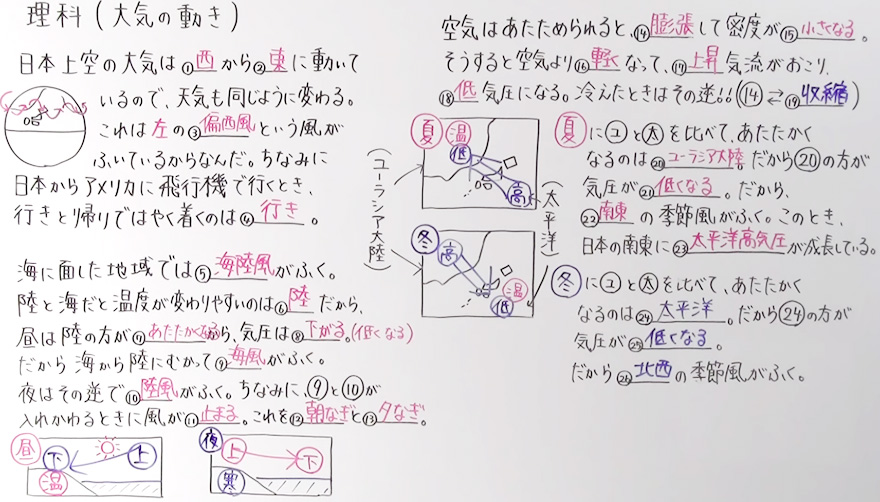 理科(大気の動き)
日本上空の大気は①西から②東に動いて
いるので、天気も同じように変わる。
これは左の③偏西風という風が
ふいているからなんだ。ちなみに
日本からアメリカに飛行機で行くとき、
行きと帰りではやく着くのは④行き。
海に面した地域では⑤海陸風がふく。
陸と海だと温度が変わりやすいのは⑥陸だから、
昼は陸の方が⑦あたたかくなるから、気圧は⑧下がる。(低くなる)
だから海から陸にむかって⑨海風がふく。
夜はその逆で⑩陸風がふく。ちなみに、⑨と⑩が
入れかわるときに風が⑪止まる。これを⑫朝なぎと⑬夕なぎ。
昼
下
上
温
夜
上
下
寒
空気はあたためられると、⑭膨張して密度が⑮小さくなる。
そうすると空気より⑯軽くなって、⑰上昇気流がおこり、
⑱低気圧になる。冷えたときはその逆!!(⑭⇄⑲収縮)
夏 温
低
高
(ユーラシア大陸)
(太平洋)
冬
高
温
低
夏にユと太を比べて、あたたかく
なるのは⑳ユーラシア大陸。だから⑳の方が
気圧が㉑低くなる。だから、
㉒南東の季節風がふく。このとき、
日本の南東に㉓太平洋高気圧が成長している。
冬にユと太を比べて、あたたかく
なるのは㉔太平洋。だから㉔の方が
気圧が㉕低くなる。
だから㉖北西の季節風がふく。